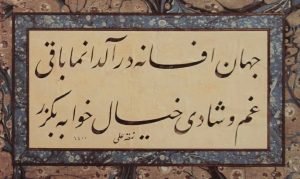 جهان افسانه در آلدانما باقی
غم و شادی خیال خوابه بکزر
نمقه علی